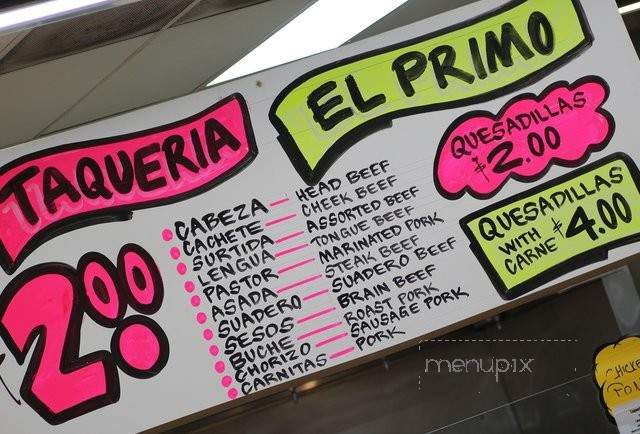 TAQUERIA
EL PRIMO
2.00
CABEZA — HEAD BEEF
CACHETE — CHEEK BEEF
SURTIDA — ASSORTED BEEF
LENGUA — TONGUE BEEF
PASTOR — MARINATED PORK
ASADA — STEAK BEEF
SUADERO — SUADERO BEEF
SESOS — BRAIN BEEF
BUCHE — ROAST PORK
CHORIZO — SAUSAGE PORK
CARNITAS — PORK
QUESADILLAS
$2.00
QUESADILLAS
WITH CARNE $4.00
menupix